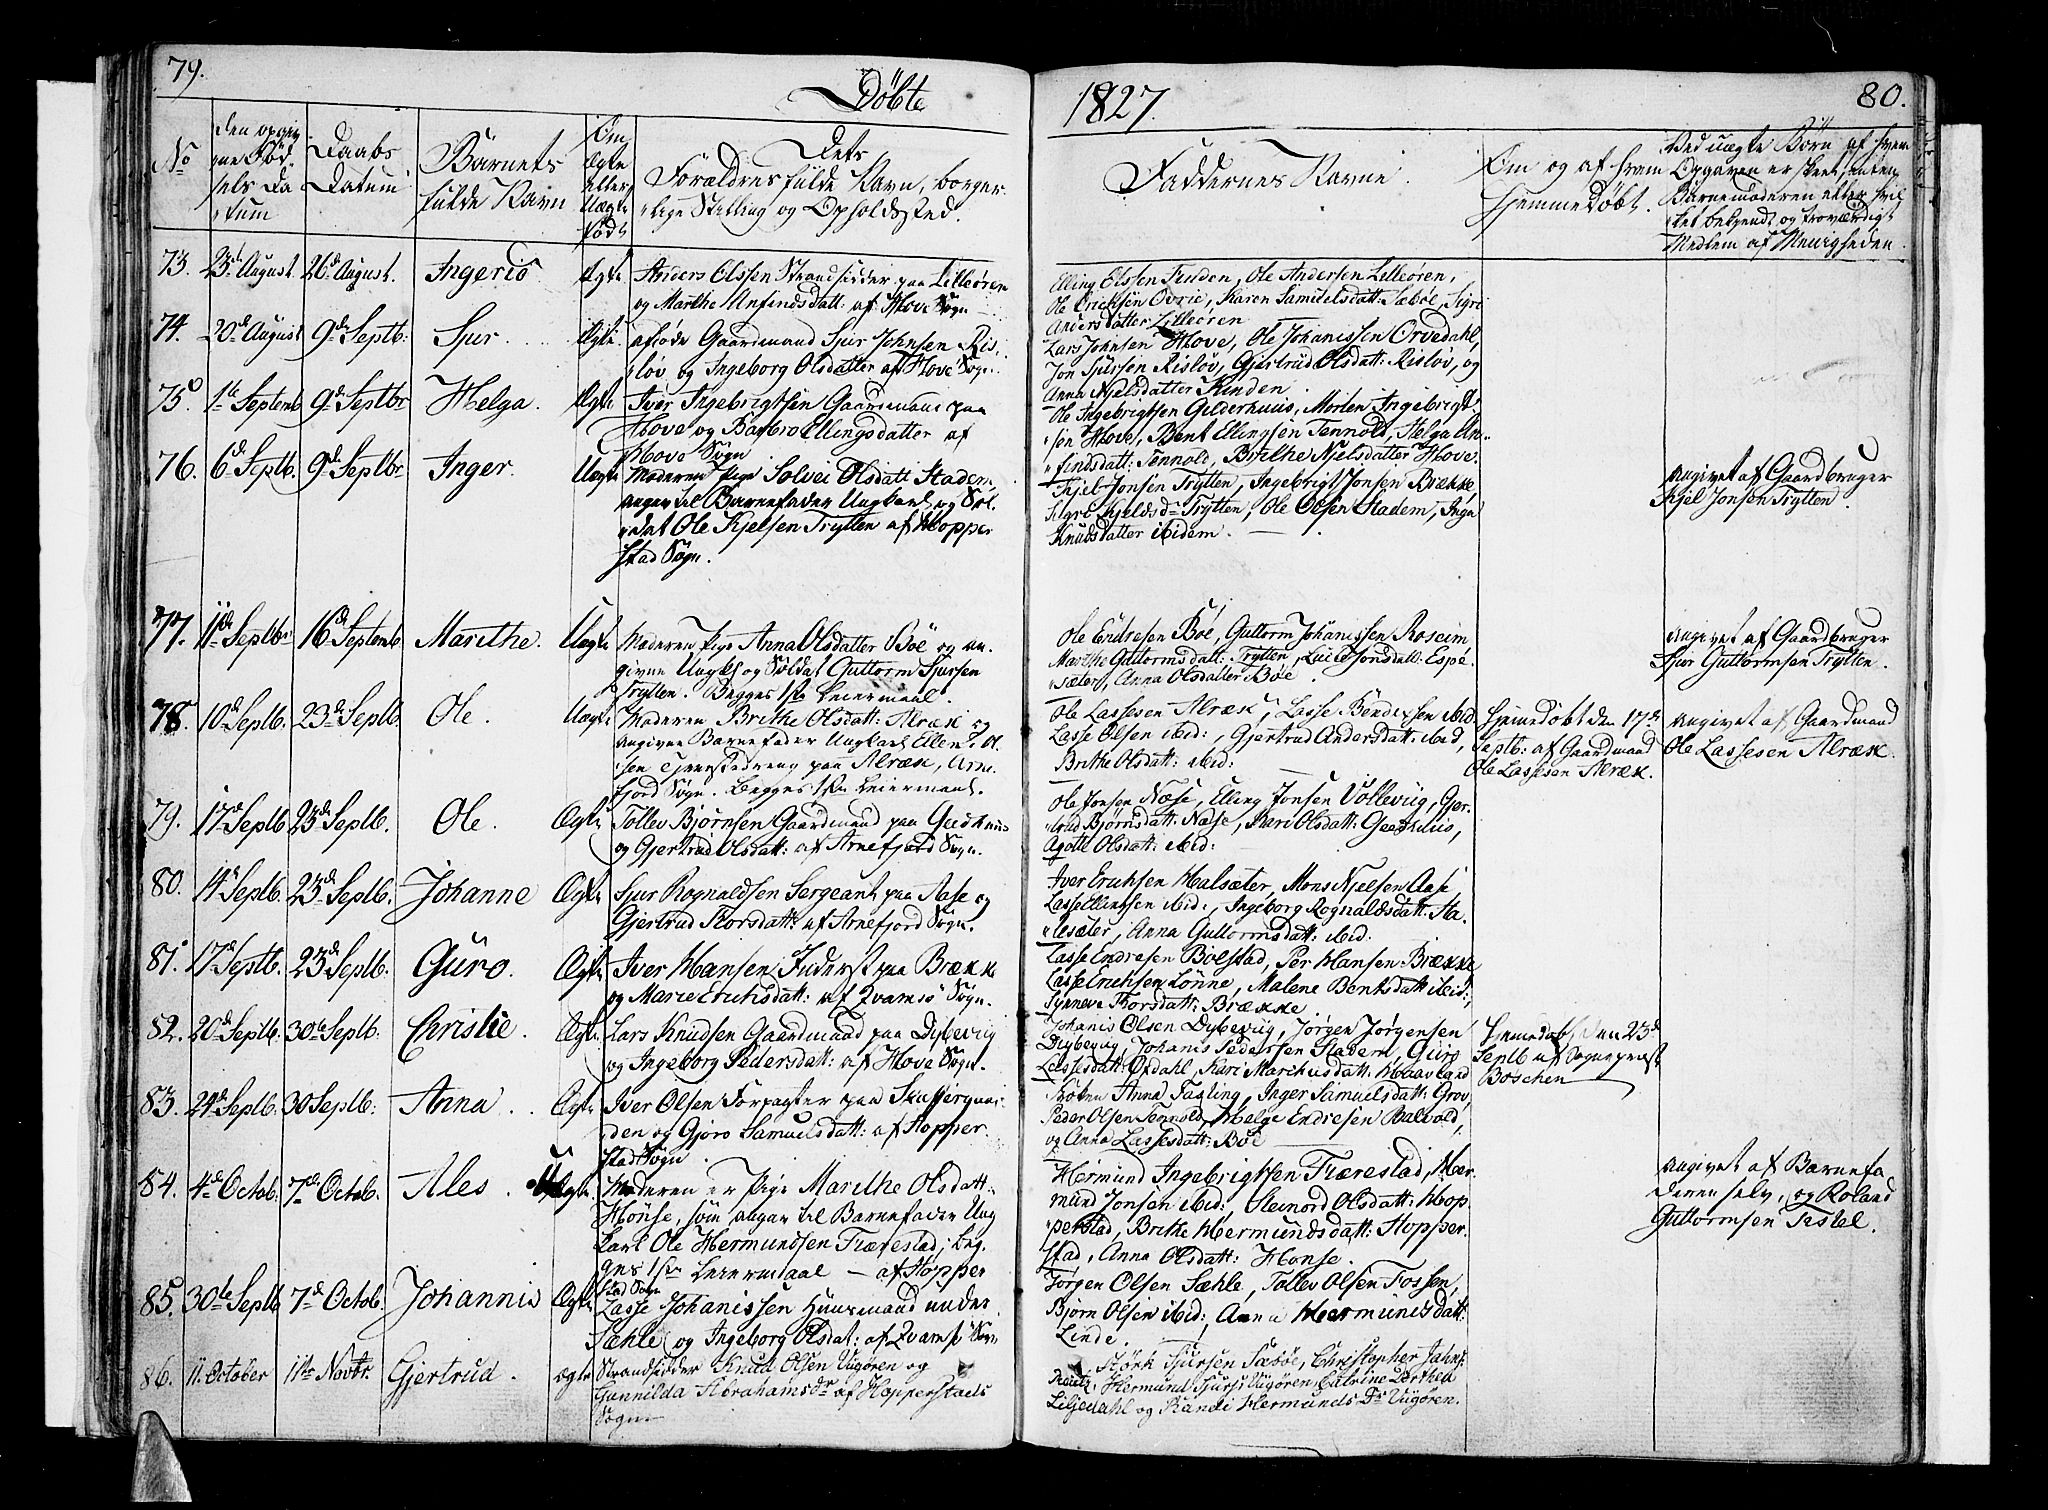 79.
Döbte
1827.
80.
No
Den opgiv
ne Föd
sels Da
tum
Daabs
Datum
Barnets
fulde Navn
Om
Ægte
eller
Uægte
Födt
Dets
Forældres fulde Navn, borger-
lige Stilling og Opholdssted.
Faddernes Navne.
Om og af hvem
hjemmedøbt.
Ved uægte Börn af hvem
Opgaven er skeet, enten
Barnemoderen eller hvil
ket bekjendt og troværdigt
Medlem af Menigheden.
73. 23d August. 26d August. Ingerid Ægte Anders Olssen Strandsidder paa Lilleören
og Marthe Anfindsdatt: af Hove Sogn
Elling Olssen Finden, Ole Andersen Lilleören,
Ole Ericksen Ovrie, Karen Samuelsdatt: Sæböe, Sigri
Andersdatter Lilleören
74. 20d August 9d Septb: Sjur. Ægte. afdöde Gaardmand Sjur Johnsen Ris-
löv og Ingeborg Olsdatter af Hove Sogn
Lars Johnsen Hove, Ole Johanissen Orvedahl,
Jon Sjursen Rislöv, Gjertrud Olsdatt: Rislöv, og
Anna Njelsdatter Finden.
75. 1te Septemb 9d Septbr Helga. Ægte Iver Ingebrigtsen Gaardmand paa
Hove og Barbro Ellingsdatter af
Hove Sogn
Ole Ingebrigtsen Gilderhuus, Morten Ingebrigt
sen Hove, Bent Ellingsen Tennold, Helga An-
findsdatt: Tennold, Brithe Njelsdatter Hove.
76. 6d Septb. 9d Septbr Inger. Uægte Moderen Pige Solvei Olsdatt Stadem,
angav til Barnefader Ungkarl og Sol-
dat Ole Kjelsen Trytten af Hopper
stad Sogn.
Kjel Jonsen Trytten, Ingebrigt Jonsen Brække
Sigri Kjeldsd: Trytten, Ole Olsen Stadem, Inga
Knudsdatter ibidem.
Angivet af Gaardbruger
Kjel Jonsen Trytten.
77. 11d Septbr 16d Septemb Marithe. Uægte Moderen Pige Anna Olsdatter Böe og an-
givne Ungkl og Soldat Guttorm Sjursen
Trytten. Begges 1ste Leiermaal.
Ole Endresen Böe, Guttorm Johanissen Roseim
Marthe Guttormsdatt: Trytten, Lucie Jonsdatt: Espe-
sæter, Anna Olsdatter Böe
Angivet af Gaardbruger
Sjur Guttormsen Trytten.
78. 10d Septb. 23d Septb. Ole. Uægte Moderen Brithe Olsdatt: Alræk og
angivne Barnefader Ungkarl Ellend Ol-
sen Tjenestedreng paa Alræk, Arne-
fjord Sogn. Begges 1ste Leiermaal.
Ole Lassesen Alræk, Lasse Bendixsen ibid.
Lasse Olsen ibid:, Gjertrud Andersdatt: ibid,
Brithe Olsdatt: ibid:
Hjemedöbt den 17de
Septb: af Gaardmand
Ole Lassesen Alræk.
Angivet af Gaardmand
Ole Lassesen Alræk.
79. 17d Septb 23d Septb. Ole. Ægte Tollev Björnsen Gaardmand paa Geithuus
og Gjertrud Olsdatt: af Arnefjord Sogn.
Ole Jonsen Næse, Elling Jonsen Vollevug, Gjer-
trud Björnsdatt: Næse, Kari Olsdatt: Geithuus,
Agatte Olsdatt: ibid:
80. 14d Septb. 23d Septb. Johanne Ægte Sjur Rognaldsen Sergeant paa Aase og
Gjertrud Thorsdatt: af Arnefjord Sogn.
Iver Erichsen Halsæter, Mons Njelsen Aase,
Lasse Ellingsen ibid:, Ingeborg Rognaldsdatt: Ha-
lesæter, Anna Guttormsdatt: ibid.
81. 17d Septb. 23d Septb. Guro. Ægte Iver Hansen Inderst paa Brække
og Marie Erichsdatt: af Qvamsö Sogn.
Lasse Endresen Bolstad, Per Hansen Brække
Lasse Erichsen Lönne, Malene Bentsdatt ibid:,
Synneva Thorsdatt: Brække
82. 20d Septb. 30te Septb. Christie. Ægte Lars Knudsen Gaardmand paa Dybevug
og Ingeborg Pedersdatt: af Hove Sogn.
Johanis Olsen Dybevug, Jörgen Jörgensen
Dybevug, Johanis Pedersen Stadem, Guro
Lassesdatt: Ofdahl, Kari Markusdatt: Haaveland
Hjemedöbt den 23d
Septb af Sogneprest
Böschen
83. 24d Septb. 30 Septb: Anna. Ægte Iver Olsen Forpagter paa Skaffergaar-
den og Gjöro Samuelsdatt: af Hopper-
stad Sogn.
Froken Anna Fasting, Inger Samuelsdatt: Grov,
Peder Olsen Tennold, Helge Endresen Halvold,
og Anna Lassesdatt: Böe
84. 4d Octob. 7d Octob. Ales. Uægte Moderen er Pige Marithe Olsdatt:
Honse, som angav til Barnefader Ung
karl Ole Hermundsen Færestad; beg-
ges 1ste Leiermaal — af Hopper
stad Sogn
Hermund Ingebrigtsen Færestad, Her-
mund Jonsen ibid:, Steinord Olsdatt: Hop-
perstad, Brithe Hermundsdatt: Hopper-
stad, Anna Olsdatt: Honse.
Angivet af Barnefa
deren selv, og Roland
Guttormsen Tistel.
85. 30te Septb 7d Octob. Johannis Ægte Lasse Johanissen Huusmand under
Sæhle og Ingeborg Olsdat: af Qvamsö Sogn
Jörgen Olsen Sæhle, Tollev Olsen Fossen,
Björn Olsen ibid:, Anna Hermundsdatt:
Linde.
86. 11. October 11te Novbr. Gjertrud. ægte Strandsidder Knud Olsen Vigören og
Gunnilda Abrahamsdr af Hopperstads
Sogn
Störk Sjursen Sæböe, Christopher Jahns
Reutz, Hermund Sjurs: Vigören, Catrine Dorthea
Liljedahl og Randi Hermunds Dr Vigören.